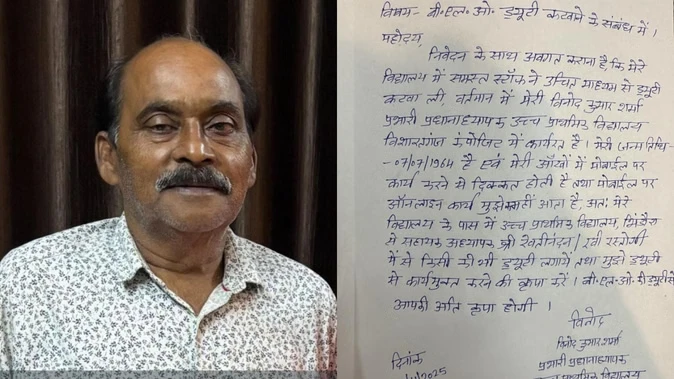 विषय- बी.एल.ओ. ड्यूटी कटवाने के संबंध में।
महोदय,
निवेदन के साथ अवगत कराना है, कि मेरे
विद्यालय में समस्त स्टॉफ ने उचित माध्यम से ड्यूटी
कटवा ली, वर्तमान में मेरी विनोद कुमार शर्मा
प्रभारी प्रधानाध्यापक उच्च प्राथमिक विद्यालय
में कार्यरत है। मेरी जन्म तिथि-
-07/07/1964 है एवं मेरी आँखों में मोबाईल पर
कार्य करने में दिक्कत होती है तथा मोबाईल पर
ऑनलाइन कार्य मुझे नहीं आता है, अतः मेरे
विद्यालय के पास में उच्च प्राथमिक विद्यालय,
से सहायक अध्यापक श्री / रवी रस्तोगी
में से किसी की भी ड्यूटी लगायें तथा मुझे ड्यूटी
से कार्यमुक्त करने की कृपा करें। बी.एल.ओ. की ड्यूटी से
आपकी अति कृपा होगी।
विनोद
विनोद कुमार शर्मा
प्रभारी प्रधानाध्यापक
दिनांक
प्राथमिक विद्यालय
2025